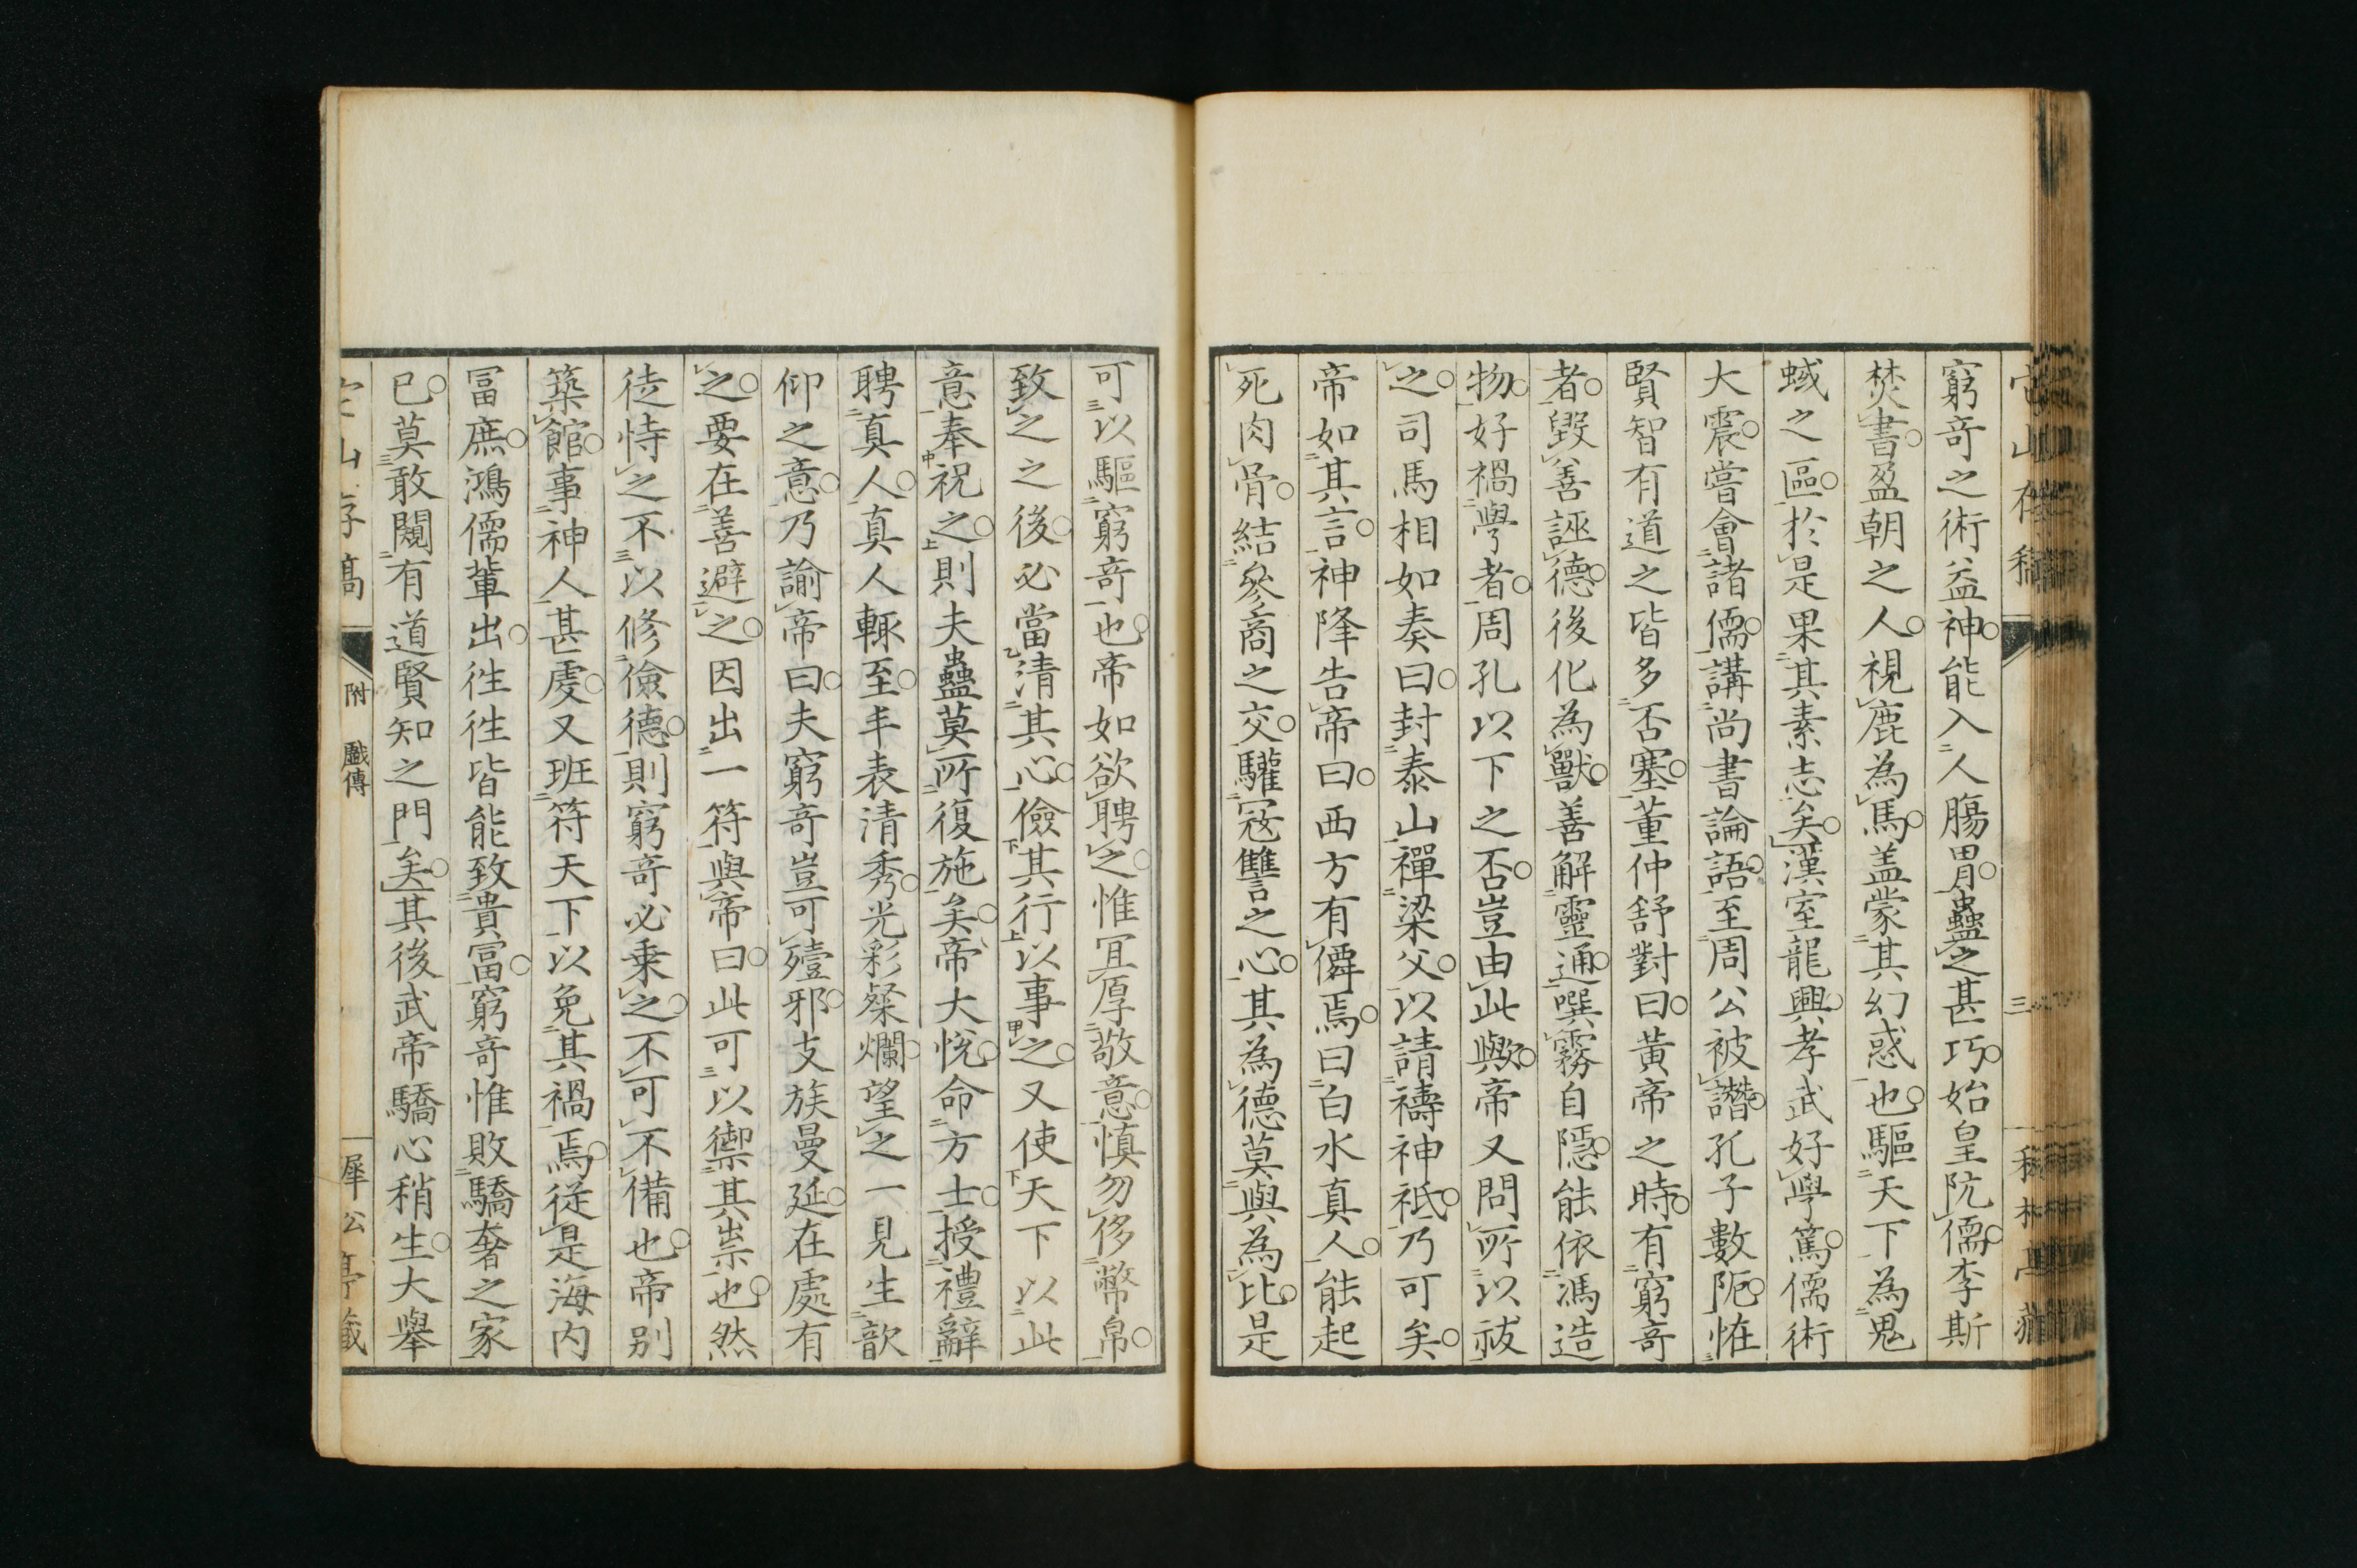 窮奇之術益神能入人腸胃蠱之甚巧始皇阬儒李斯
焚書盈朝之人視鹿為馬盖蒙其幻惑也驅天下為鬼
蜮之區於是果其素志矣漢室龍興孝武好學篤儒術
大震嘗會諸儒講尚書論語至周公被譖孔子數阨恠
賢智有道之皆多否塞董仲舒對曰黃帝之時有窮奇
者毀善誣德後化為獸善解靈通噀霧自隱能依馮造
物好禍學者周孔以下之否豈由此與帝又問所以祓
之司馬相如奏曰封泰山禪梁父以請禱神祇乃可矣
帝如其言神降告帝曰西方有僊焉曰白水真人能起
死肉骨結參商之交驩寇讐之心其為德莫與為比是
可以驅窮奇也帝如欲聘之惟冝厚敬意慎勿侈幣帛
致之之後必當清其心儉其行以事之又使天下以此
意奉祝之則夫蠱莫所復施矣帝大悅命方士授禮辭
聘真人真人輙至丰表清秀光彩粲爛望之一見生歆
仰之意乃諭帝曰夫窮奇豈可殪邪支族曼延在處有
之要在善避之因出一符與帝曰此可以禦其祟也然
徒恃之不以修儉德則窮奇必乗之不可不備也帝别
築館事神人甚虔又班符天下以免其禍焉從是海内
冨庶鴻儒輩出徃徃皆能致貴冨窮奇惟敗驕奢之家
已莫敢闚有道賢知之門矣其後武帝驕心稍生大舉
附　戲傳